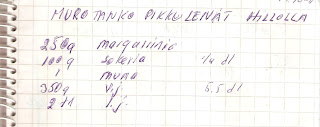 MUROTANKO PIKKULEIVÄT HILLOLLA
250g margariinia
100g sokeria 1/4 dl
1 muna
350g v.j. 5.5 dl
2 tl l.j.